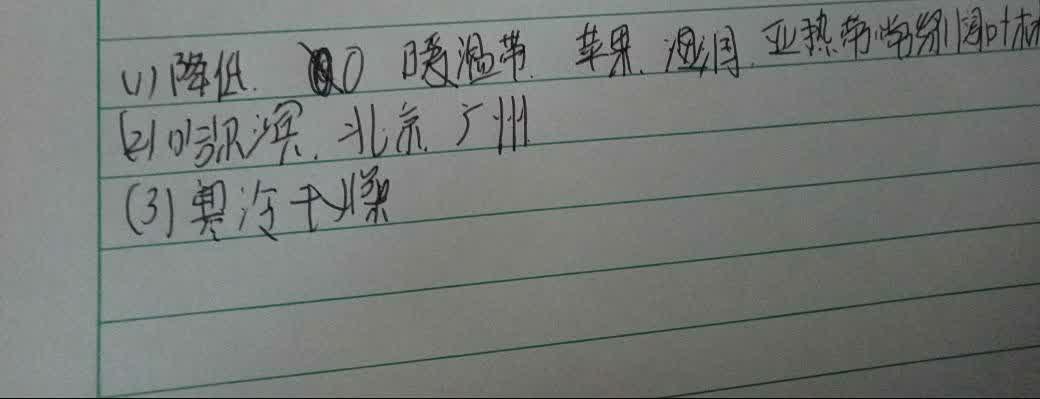 (1)降低. 0 暖温带. 苹果. 湿润. 亚热带常绿阔叶林
(2)哈尔滨. 北京. 广州
(3)寒冷干燥